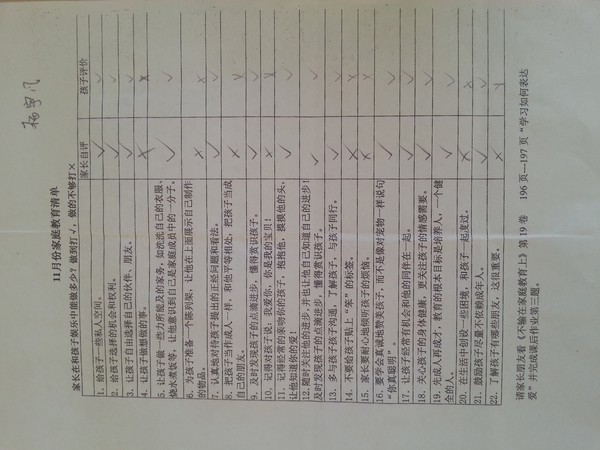 11月份家庭教育清单
家长在和孩子娱乐中能做多少？做到打√，做的不够打×
家长自评 孩子评价
1、给孩子一些私人空间。 √ √
2、给孩子选择的机会和权利。 √ √
3、让孩子自由选择自己的伙伴、朋友。 √ √
4、让孩子做想做的事。 × ×
5、让孩子做一些力所能及的家务，如洗洗自己的衣服、
烧水煮饭等，让他意识到自己是家庭成员中的一分子。 √ √
6、为孩子准备一个陈列架，让他在上面展示自己制作
的物品。 × ×
7、认真地对待孩子提出的正经问题和看法。 √ √
8、把孩子当作成人一样，和他平等相处，把孩子当成
自己的朋友。 × ×
9、及时发现孩子的点滴进步，懂得赏识孩子。 √ √
10、记得对孩子说：我爱你，你是我的宝贝！ × ×
11、记得经常的亲吻你的孩子，抱抱他，摸摸他的头。
让他知道你的爱！ √ √
12.随时关注他的进步，并也让他自己知道自己的进步！
及时发现孩子的点滴进步，懂得赏识孩子。 √ √
13、多与孩子孩子沟通，了解孩子，与孩子同行。 √ √
14、不要给孩子贴上“笨”的标签。 × ×
15、家长要耐心地倾听孩子的烦恼。 × ×
16、要学会真真诚地赞美孩子，而不是像对宠物一样说句
“你真聪明” √ √
17、让孩子经常有机会和他的同伴在一起。 √ √
18、关心孩子的身体健康，更关注孩子的情感需要。 √ √
19、先成人再成才，教育的根本目标是培养人，一个健
全的人。 √ √
20、在生活中创设一些困境，和孩子一起度过。 × ×
21、鼓励孩子尽量不依赖成年人。 √ √
22、了解孩子有哪些朋友，这很重要。 ×
请家长朋友看《不输在家庭教育上》第 19 卷 196 页—197 页“学习如何表达
爱”并完成课后作业第三题。